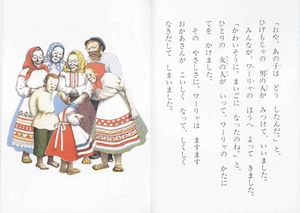 「おや、あの子は どう したんだ。」と、
ひげもじゃの 男の人が みつけて、いいました。
みんなが、ワーリャの ほうへ よって きました。
「かわいそうに。まいごに なったのね。」と、
ひとりの 女の人が いって、ワーリャの かたに
てを かけました。
その やさしさに、ワーリャは ますます
おかあさんが こいしく なって、しくしく
なきだして しまいました。